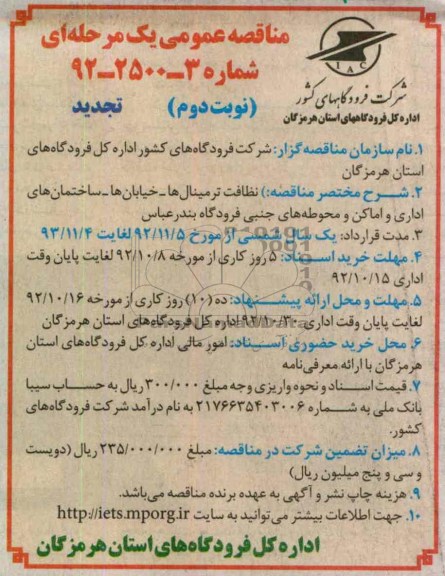 مناقصه عمومی یک مرحله‌ای
شماره ۳-۲۵۰۰-۹۲
(نوبت دوم) تجدید
IAC
شرکت فرودگاههای کشور
اداره کل فرودگاههای استان هرمزگان
۱. نام سازمان مناقصه‌گزار: شرکت فرودگاه‌های کشور اداره کل فرودگاه‌های
استان هرمزگان
۲. شرح مختصر مناقصه:) نظافت ترمینال‌ها ـ خیابان‌ها ـ ساختمان‌های
اداری و اماکن و محوطه‌های جنبی فرودگاه بندرعباس
۳. مدت قرارداد: یک سال شمسی از مورخ ۹۲/۱۱/۵ لغایت ۹۳/۱۱/۴
۴. مهلت خرید اسناد: ۵ روز کاری از مورخه ۹۲/۱۰/۸ لغایت پایان وقت
اداری ۹۲/۱۰/۱۵
۵. مهلت و محل ارائه پیشنهاد: ده (۱۰) روز کاری از مورخه ۹۲/۱۰/۱۶
لغایت پایان وقت اداری ۹۲/۱۰/۳۰ اداره کل فرودگاه‌های استان هرمزگان
۶. محل خرید حضوری اسناد: امور مالی اداره کل فرودگاه‌های استان
هرمزگان با ارائه معرفی‌نامه
۷. قیمت اسناد و نحوه واریزی وجه مبلغ ۳۰۰/۰۰۰ ریال به حساب سیبا
بانک ملی به شماره ۲۱۷۶۶۳۵۴۰۳۰۰۶ به نام درآمد شرکت فرودگاه‌های
کشور.
۸. میزان تضمین شرکت در مناقصه: مبلغ ۲۳۵/۰۰۰/۰۰۰ ریال (دویست
و سی و پنج میلیون ریال)
۹. هزینه چاپ نشر و آگهی به عهده برنده مناقصه می‌باشد.
۱۰. جهت اطلاعات بیشتر می‌توانید به سایت http://iets.mporg.ir
اداره کل فرودگاه‌های استان هرمزگان